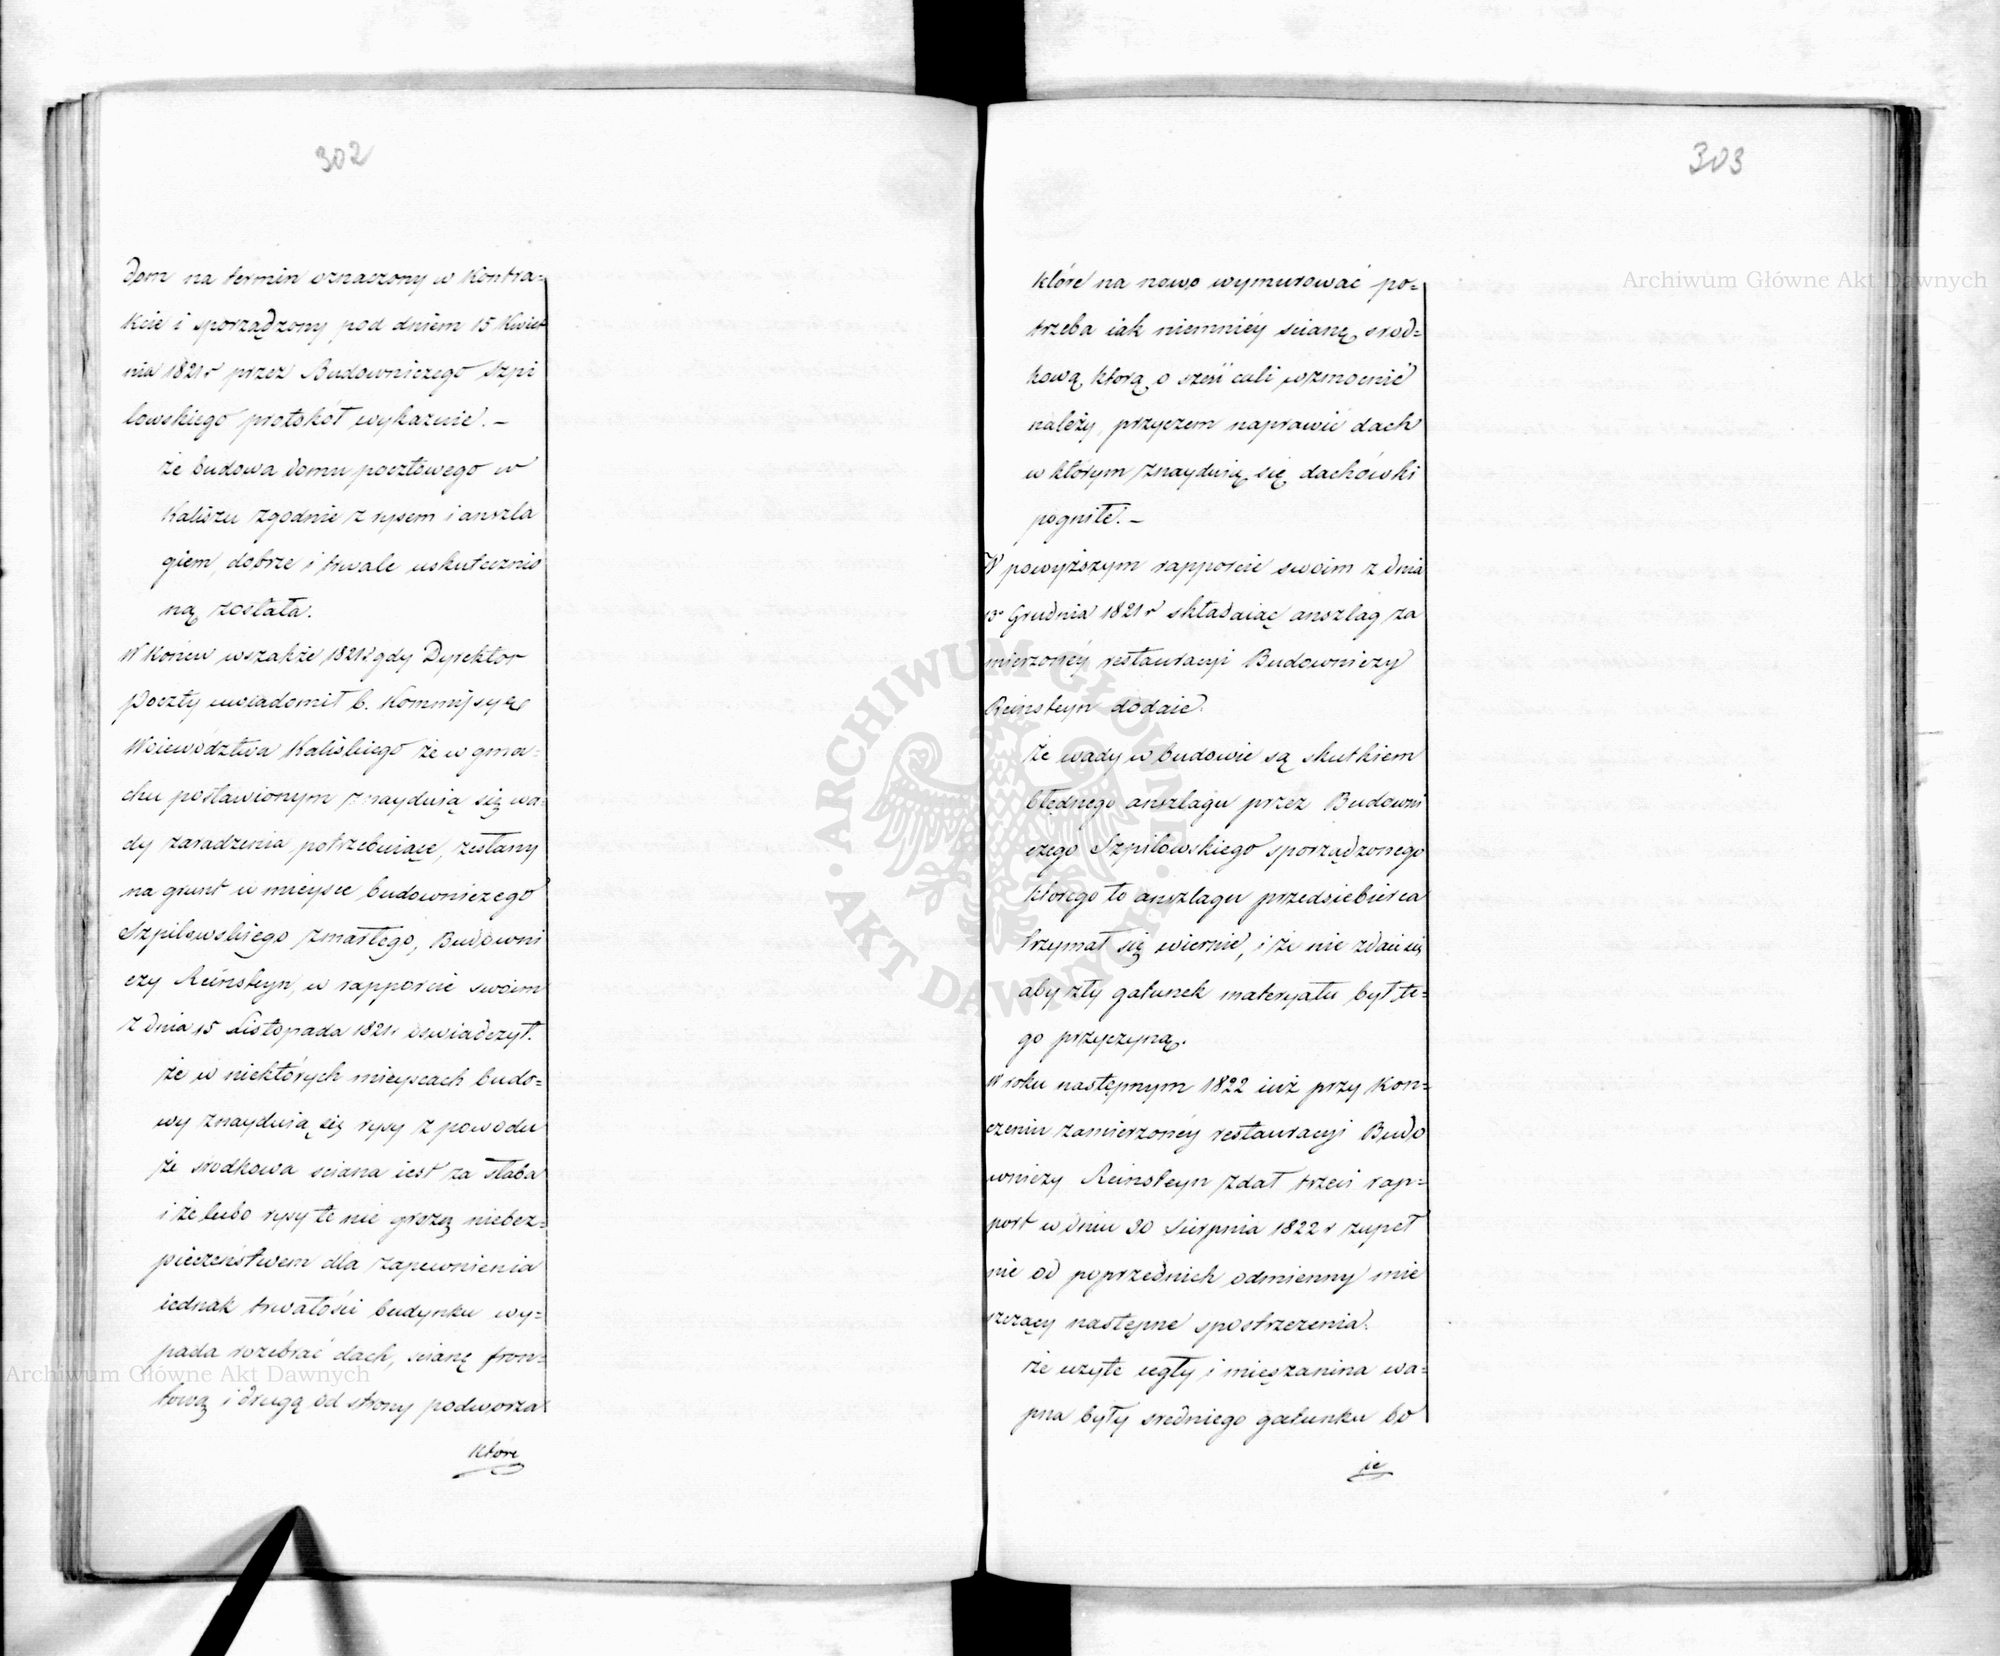 302
Dom na termin oznaczony w Kontra-
kcie i sporządzony pod dniem 15 Kwiet
nia 1821 r przez Budowniczego Szpi
lowskiego protokół wykazuie. –
że budowa domu pocztowego w
Kaliszu zgodnie z rysem i anszla
giem, dobrze i trwale uskutecznio
ną została.
W Końcu wszakże 1821 r gdy Dyrektor
Poczty uwiadomił b. Kommissyę
Woiewództwa Kaliskiego że w gma-
chu postawionym znayduią się wa-
dy zaradzenia potrzebuiące, zesłany
na grunt w mieysce budowniczego
Szpilowskiego zmarłego, Budowni
czy Reinsteyn, w rapporcie swoim
z dnia 15 Listopada 1821 r oswiadczył.
że w niektórych mieyscach budo=
wy znayduią się rysy z powodu
że srodkowa sciana iest za słaba
i że lubo rysy te nie grożą niebez=
pieczeństwem dla zapewnienia
iednak trwałości budynku wy=
pada rozebrać dach, scianę fron=
tową i drugą od strony podworza
które
303
które na nowo wymurować po=
trzeba iak niemniéy scianę srod=
kową którą o sześć cali wzmocnić
należy, przyczem naprawić dach
w którym znayduią się dachówki
pogniłe. –
W powyższym rapporcie swoim z dnia
Grudnia 1821 r składaiąc anszlag za
mierzonéy restauracyi Budowniczy
Reinsteyn dodaie.
że wady w budowie są skutkiem
błędnego anszlagu przez Budowni
czego Szpilowskiego sporządzonego
którego to anszlagu przedsiebierca
trzymał się wiernie, i że nie zdaie się
aby zły gatunek materyału był te=
go przyczyną.
W roku następnym 1822 iuż przy Kon=
czeniu zamierzonéy restauracyi Budo
wniczy Reinsteyn zdał trzeci rap=
port w dniu 30 Sierpnia 1822 r zupeł
nie od poprzednich odmienny mie
szczący następne spostrzezenia.
że użyte cegły i mięszanina wa=
pna były sredniego gatunku bo
ie
Archiwum Główne Akt Dawnych
Archiwum Główne Akt Dawnych
ARCHIWUM GŁÓWNE · AKT DAWNYCH ·